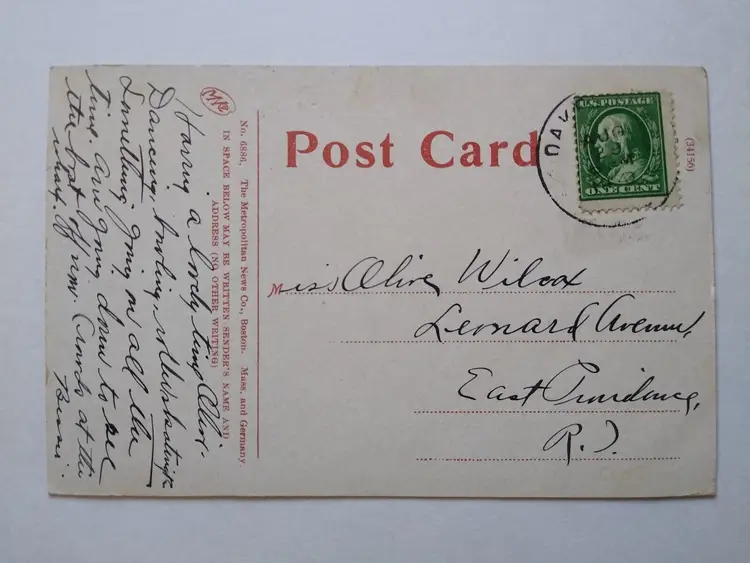 Post Card
U.S. POSTAGE
ONE CENT
DAV
AUG
(34156)
Miss Olive Wilcox
Leonard Avenue,
East Providence,
R.I.
No. 6886. The Metropolitan News Co., Boston. Mass, and Germany.
IN SPACE BELOW MAY BE WRITTEN SENDER'S NAME AND
ADDRESS (NO OTHER WRITING)
Having a lovely time Olive.
Dancing, bowling, rollerskating
Something going on all the
time. are going down to see
the boat off now. Crowds at the
wharf.